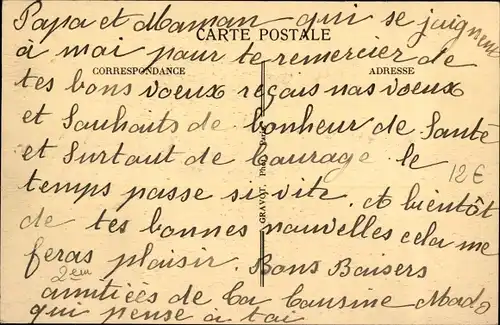 Papa et Maman qui se joignent
CARTE POSTALE
à moi pour te remercier de
CORRESPONDANCE
ADRESSE
tes bons voeux reçois nos voeux
et Souhaits de bonheur de Santé
et Surtout de Courage le
12€
temps passe si vite. et bientôt
de tes bonnes nouvelles cela me
feras plaisir. Bons Baisers
2em
amitiées de ta Cousine Mado
qui pense à toi
GRAVOT, Phot.